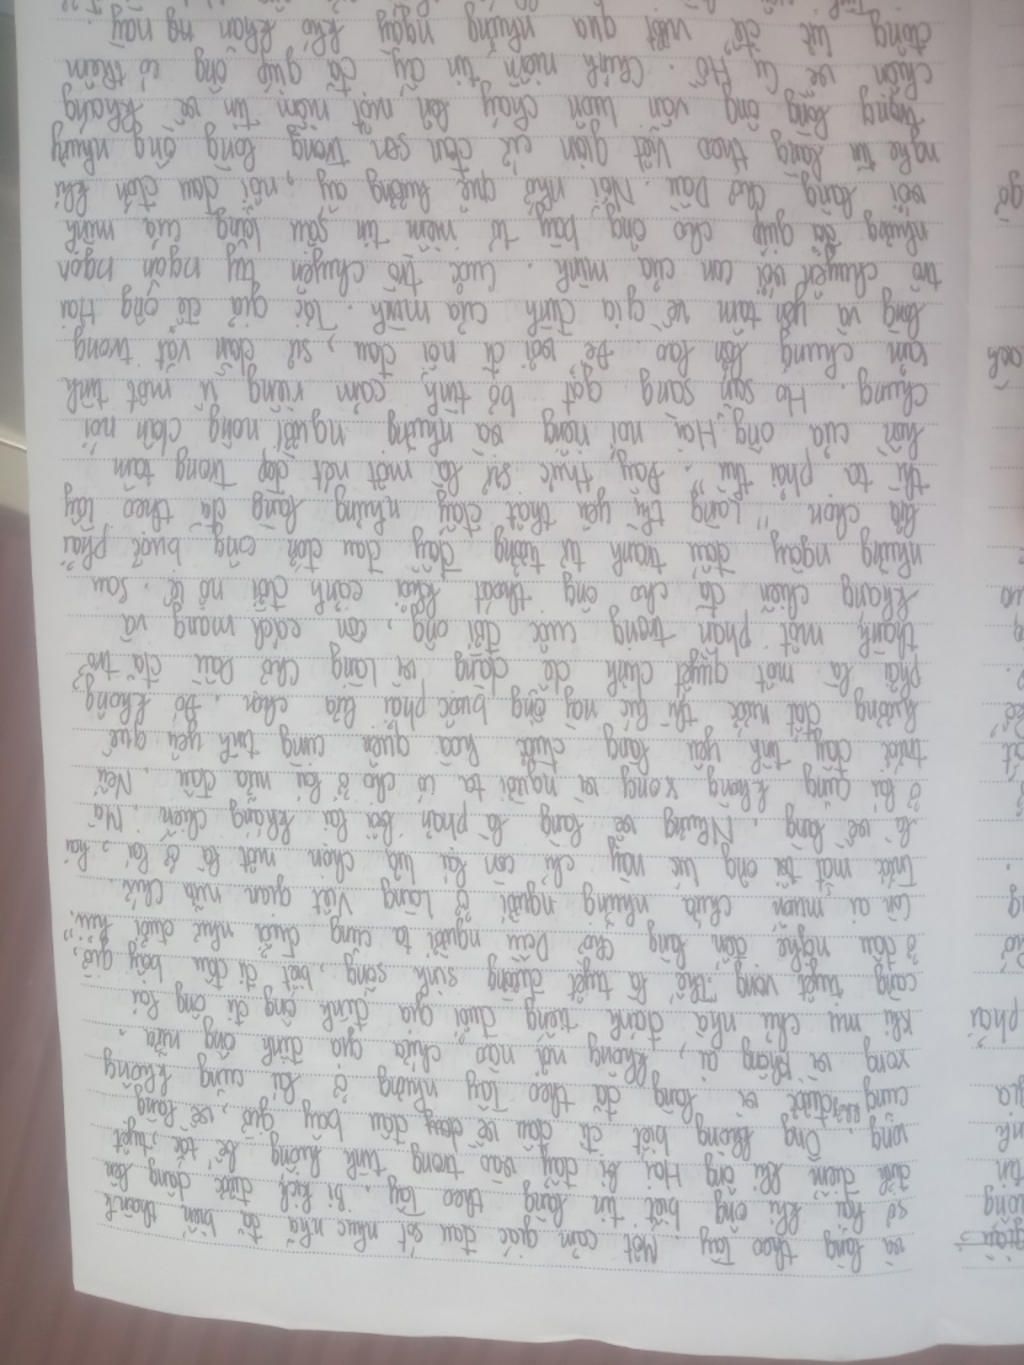 và làng theo Tây. Một cảm giác đau xót nhục nhã đã biến thành
sợ hại khi ông biết tin làng theo Tây. Bi kịch được dâng lên
đỉnh điểm khi ông Hai bị đẩy vào trong tình huống bế tắc, tuyệt
vọng. Ông không biết đi đâu về đâu bây giờ, về làng
cũng không được vì làng đã theo Tây nhưng ở lại cũng không
xong vì không ai, không nơi nào chứa gia đình ông nữa.
Khi mụ chủ nhà đánh tiếng đuổi gia đình ông đi ông lại
càng tuyệt vọng "Thế là tuyệt đường sinh sống, biết đi đâu bây giờ,
ở đâu nghe đến làng chợ Dầu người ta cũng đuổi như đuổi hủi.
Còn ai muốn chứa những người ở làng Việt gian nữa chứ.
Trước mắt ta ông lúc này chỉ còn lại lựa chọn một là ở lại, hai
là về làng. Nhưng về làng là phản bội lại kháng chiến. Mà
ở lại cũng không xong vì người ta có cho ở lại nữa đâu. Nếu
trước đây tình yêu làng chưa hòa quện cùng tình yêu quê
hương đất nước thì lúc này ông buộc phải lựa chọn. Đó không
phải là một quyết định dễ dàng vì làng chợ Dầu đã trở
thành một phần trong cuộc đời ông, còn cách mạng và
kháng chiến đã cho ông thoát khỏi cảnh đời nô lệ. Sau
những ngày đấu tranh tư tưởng đầy đau đớn ông buột phải
lựa chọn "Làng thì yêu thật đấy nhưng làng đã theo Tây
thì ta phải thù". Đây thực sự là một nét đẹp trong tâm
hồn của ông Hai nói riêng và những người nông dân nói
chung. Họ sẵn sàng gạt bỏ tình cảm riêng vì một tình
cảm chung lớn lao. Để vơi đi nỗi đau, sự dằn vặt trong
lòng và yên tâm về gia đình của mình. Tác giả để ông Hai
trò chuyện với con của mình. Cuộc trò chuyện tuy ngắn ngọn
nhưng đã giúp cho ông bày tỏ niềm tin sâu lắng của mình
với làng chợ Dầu. Nỗi nhớ quê hương ấy, nỗi đau đớn khi
nghe tin làng theo Việt gian cứ còn sen trong lòng ông nhưng
trong lòng ông vẫn luôn cháy lên một niềm tin về kháng
chiến về cụ Hồ. Chính niềm tin ấy đã giúp ông có thêm
động lực để vượt qua những ngày khó khăn ng này
phải